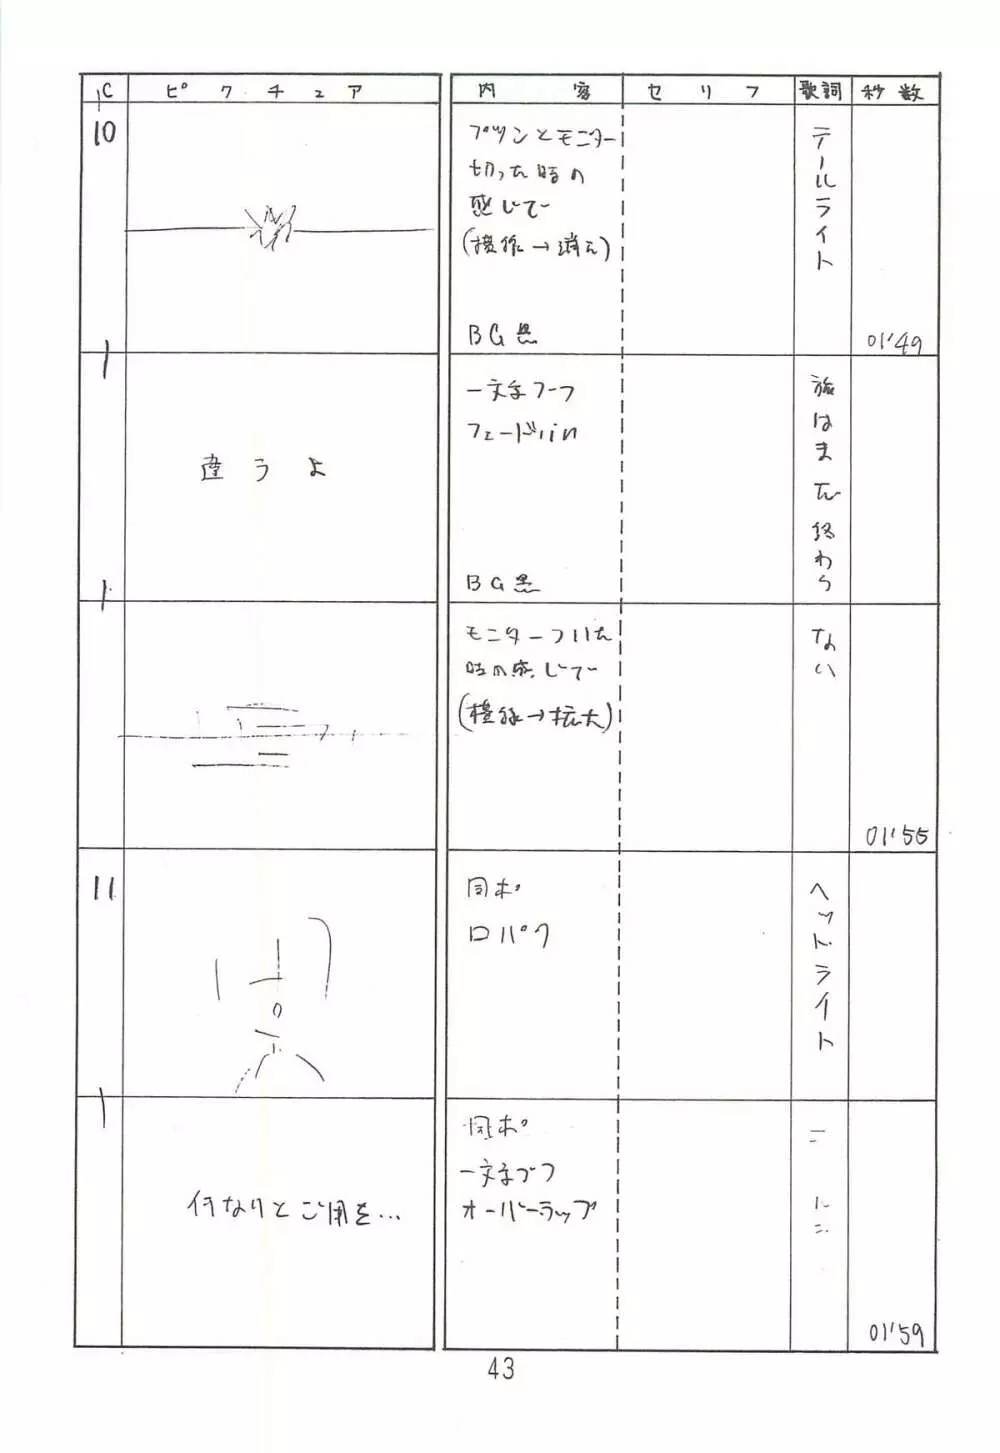 C
ピクチュア
内容
セリフ
歌詞
秒数
10
プツンとモニター
切った時の
感じで
(横線→消え)
BG黒
テールライト
01'49
違うよ
一文字づつ
フェードin
BG黒
旅はまだ終わら
モニターついた
時の感じで
(横線→拡大)
ない
01'55
11
同ポ
口パク
ヘッドライト
何なりとご用を…
同ポ
一文字づつ
オーバーラップ
01'59
43